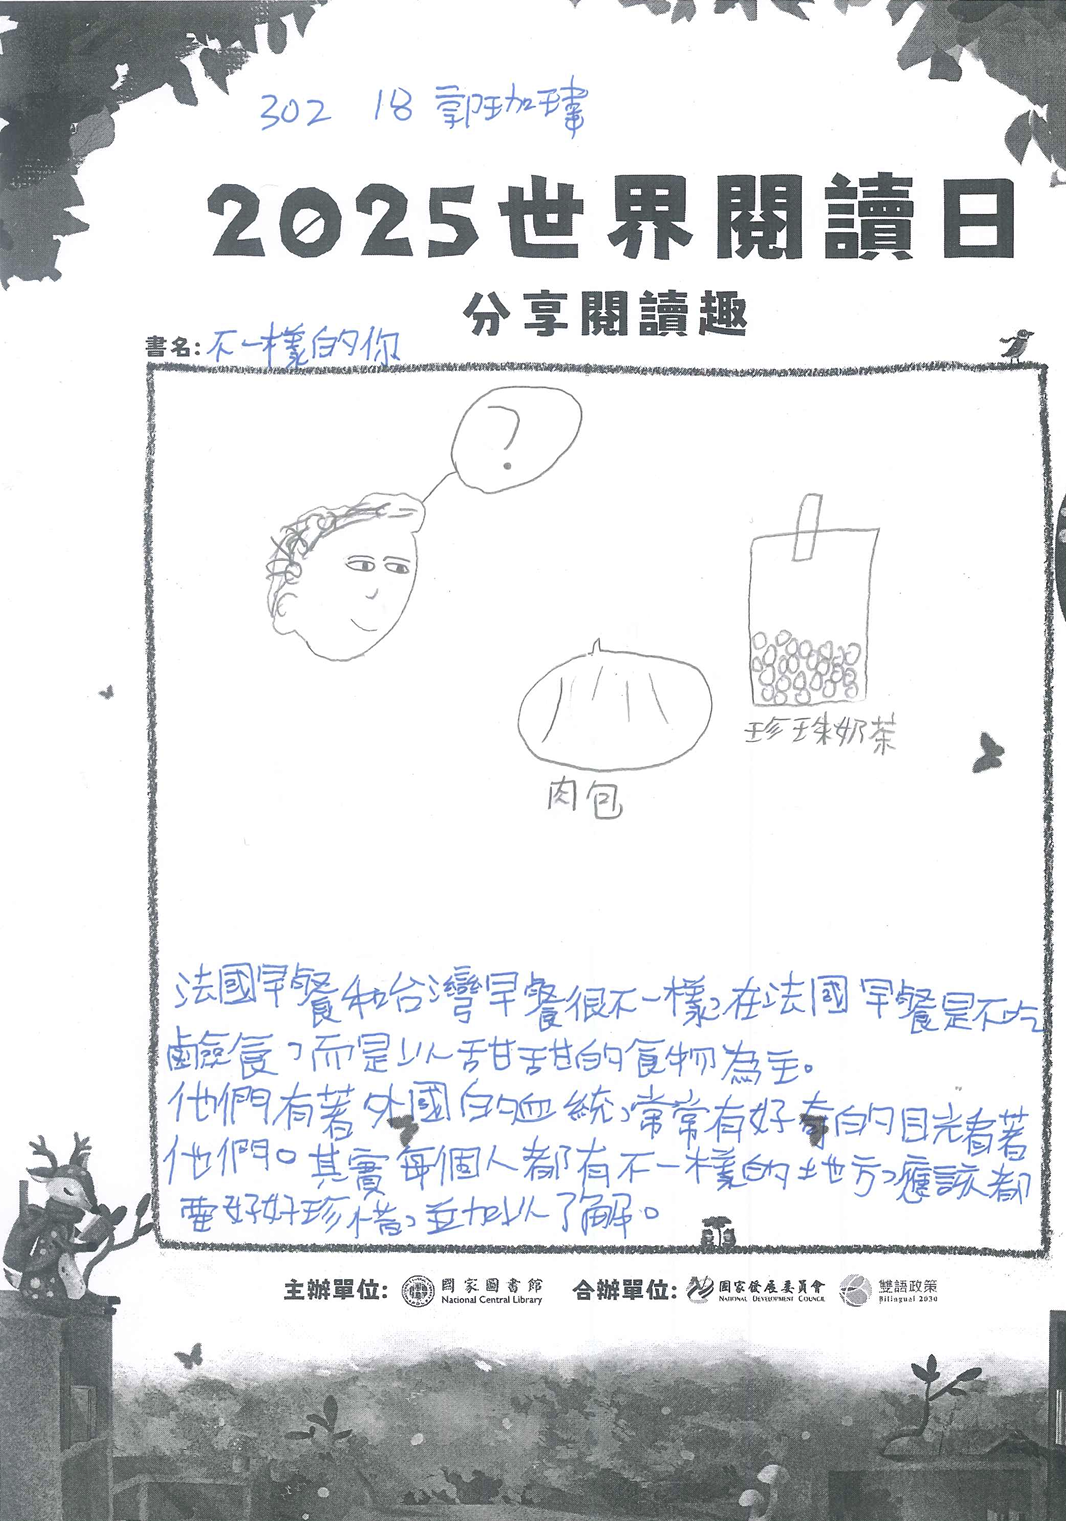 302 18 郭珈瑋
2025世界閱讀日
分享閱讀趣
書名:不一樣的你
?
珍珠奶茶
肉包
法國早餐和台灣早餐很不一樣,在法國早餐是不吃
鹼食,而是以甜甜的食物為主。
他們有著外國的血統,常常有好奇的目光看著
他們。其實每個人都有不一樣的地方,應該都
要好好珍惜,並加以了解。
主辦單位: 國家圖書館 National Central Library 合辦單位: 國家發展委員會 NATIONAL DEVELOPMENT COUNCIL 雙語政策 Bilingual 2030